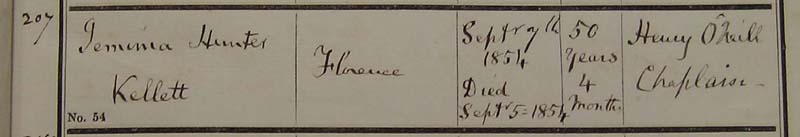 207
Jemima Hunter
Kellett
No. 54
Florence
Septr 7th
1854
Died
Septr 5=1854
50
Years
4
Months
Henry O'Neill
Chaplain